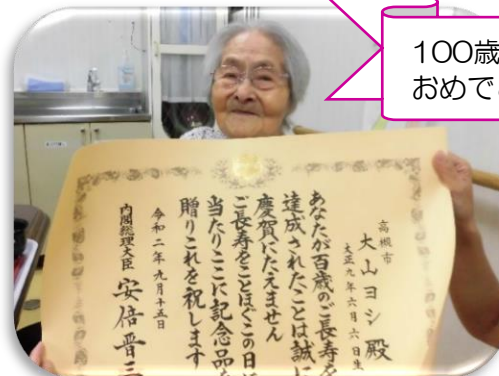 100歳
おめでと
高槻市
大山ヨシ殿
大正九年六月六日生
あなたが百歳のご長寿を
達成されたことは誠に
慶賀にたえません
ご長寿をことほぐこの日に
当たりここに記念品を
贈りこれを祝します
令和二年九月十五日
内閣総理大臣 安倍晋三